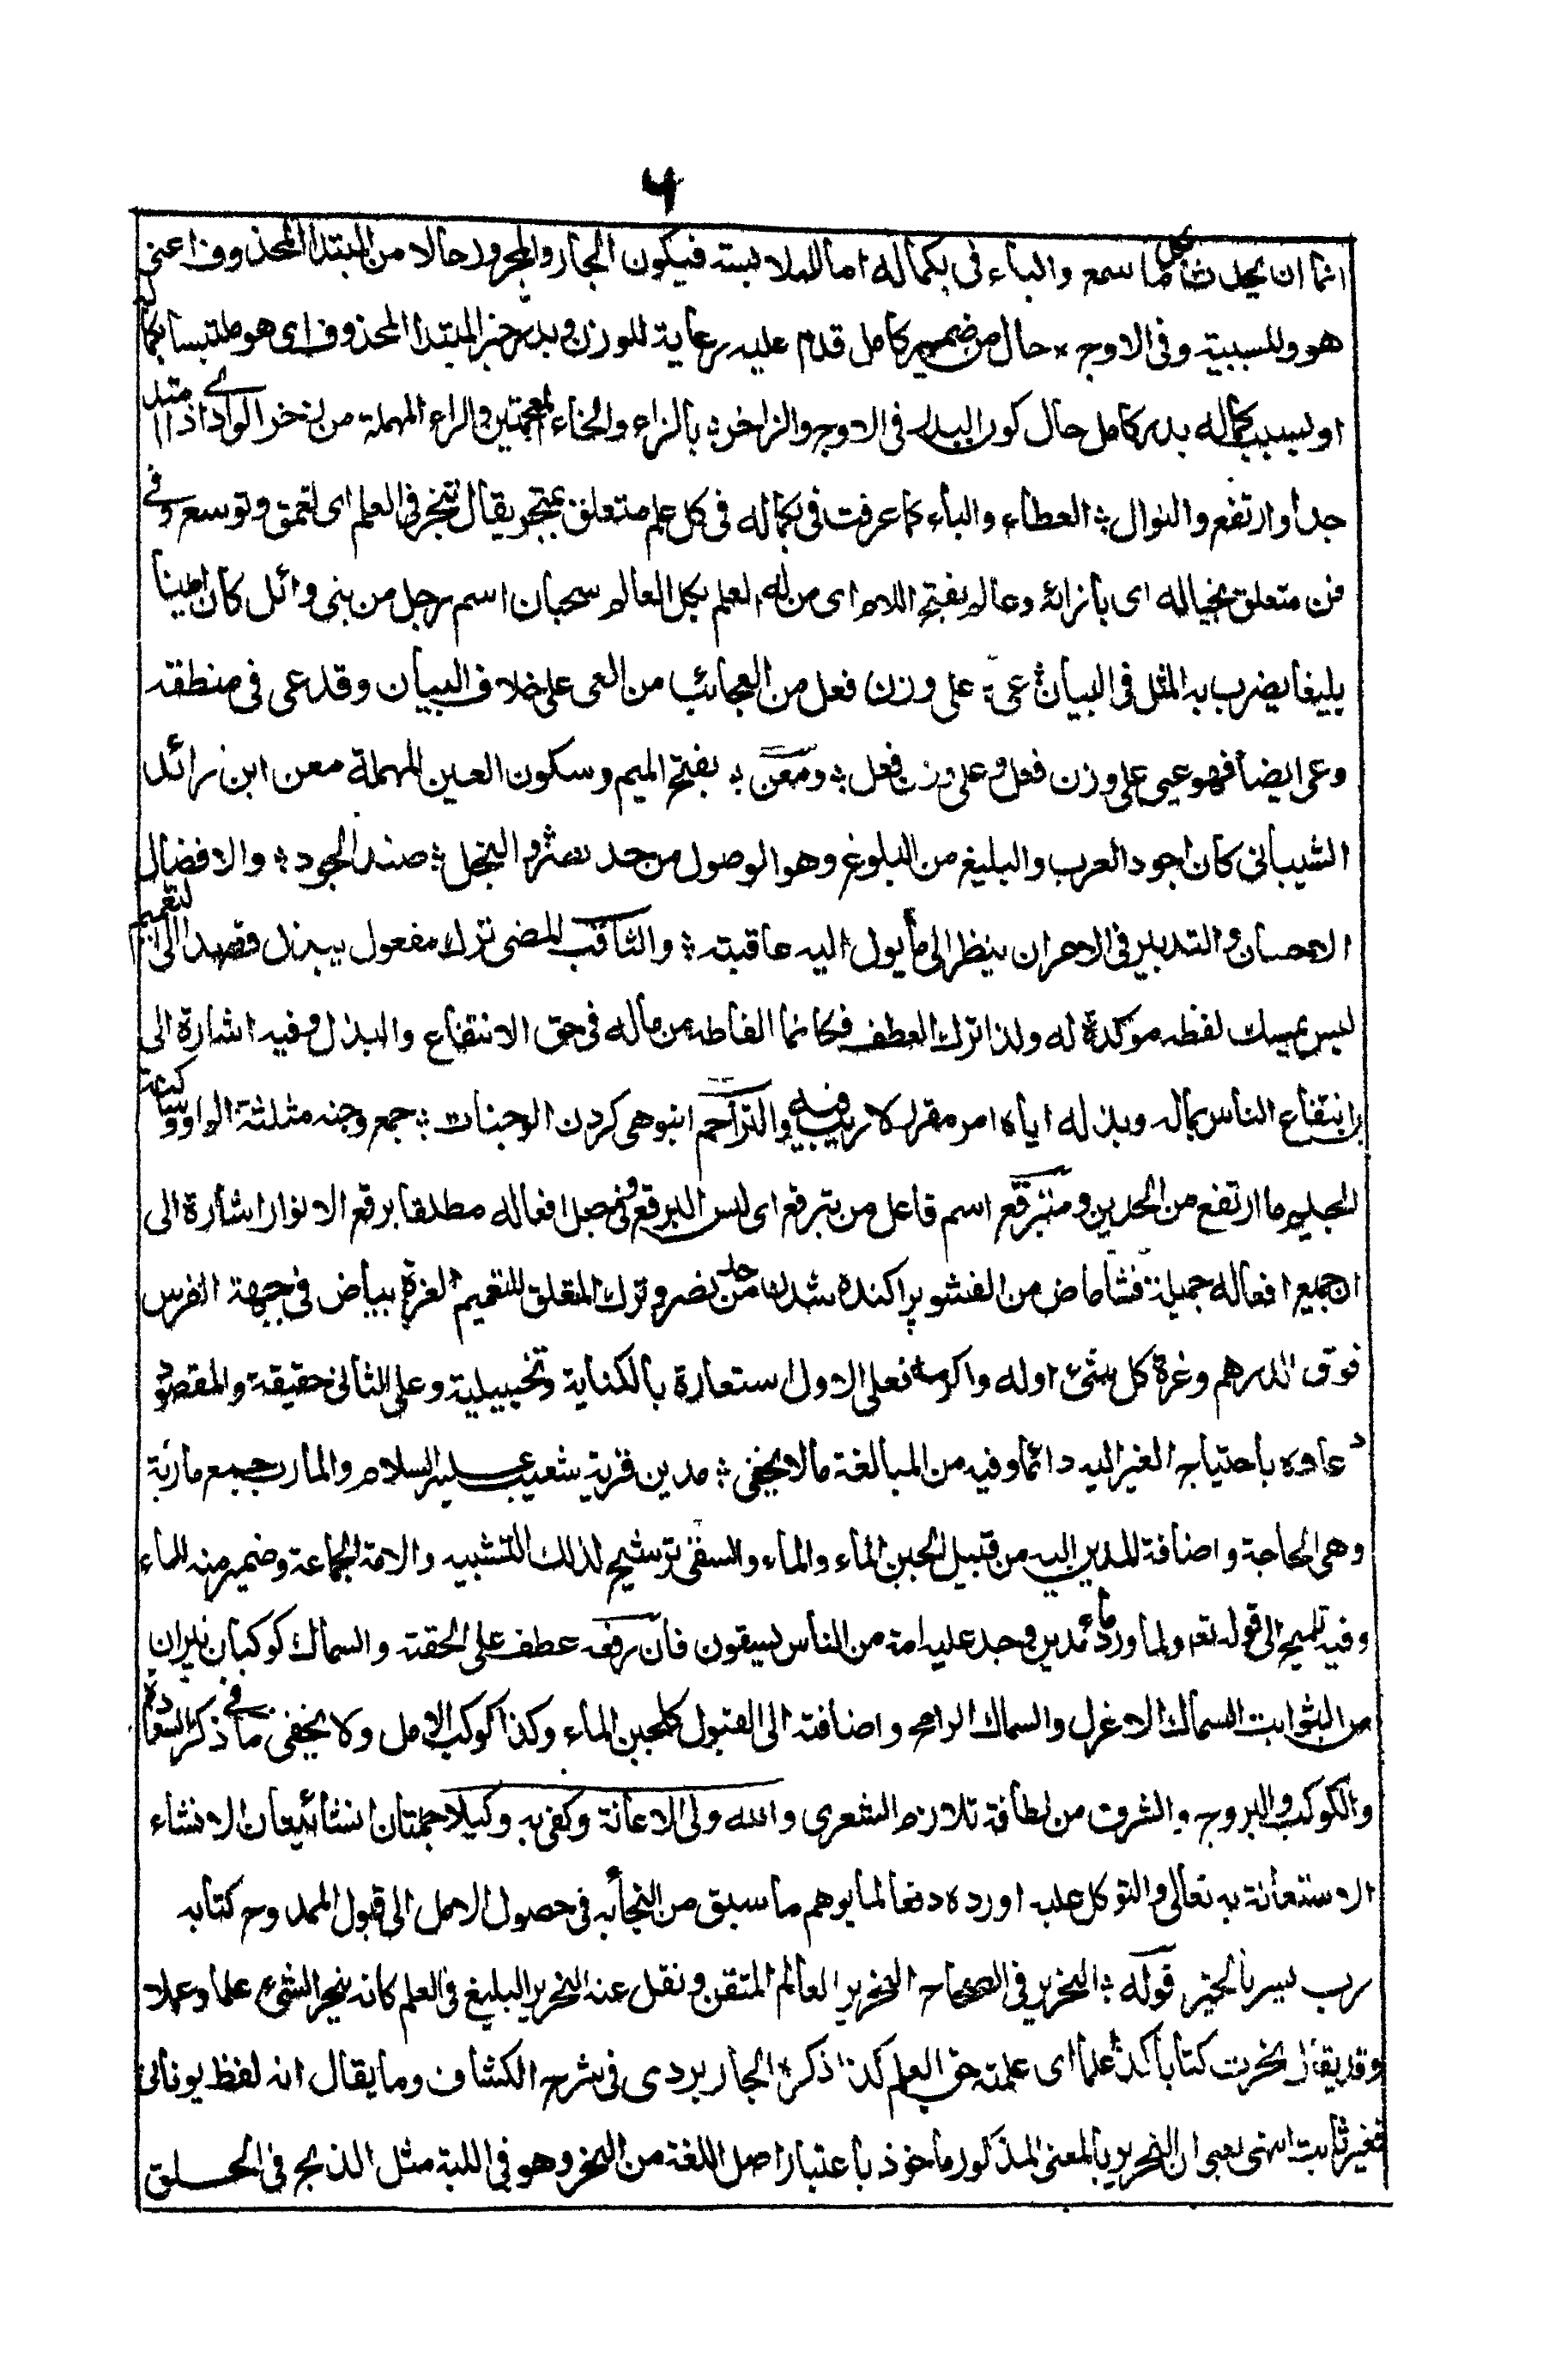 ٦
اثما ان يحدث بكل ما سمع والباء فى بكماله اما للملابسته فيكون الجار والمجرور حالا من المبتدا المحذوف اعنى
هو وللسببية وفى الاوج × حال من ضمير كامل قدم عليه رعاية للوزن وبدر خبر المبتدا المحذوف اى هو ملتبسا بكماله
او بسبب كماله بدر كامل حال كون البدر فى الاوج والزاخر ؛ بالزاء والخاء المعجمتين والراء المهملة من زخر الوادى اذا امتد
جدا وارتفع والنوال ؛ العطاء والباء كما عرفت فى بكماله فى كل علم متعلق بمتبحر يقال تبحر فى العلم اى تعمق وتوسع وفى
فن متعلق بخياله اى بازائه وعالم بفتح اللام اى من له العلم بكل العالم سحبان اسم رجل من بنى وائل كان لبينا
بليغا يضرب به المثل فى البيان ؛ عى ؛ على وزن فعل من العجائب من العى على خلاف البيان وقد عى فى منطقه
وعى ايضا فهو عيى على وزن فعل وعى على وزن فعل ؛ ومعن ؛ بفتح الميم وسكون العين المهملة معن ابن زائد
الشيبانى كان اجود العرب والبليغ من البلوغ وهو الوصول من حد نصر والبخل ؛ ضد الجود ؛ والافضال
الاحسان والتدبير فى الامر ان ينظر الى ما يول اليه عاقبته ؛ والثاقب المضى ترك مفعول يبذل قصدا الى التعميم
ليس يمسك لفظه موكدة له ولذا ترك العطف فكانما الفاظه من ماله فى حق الانتفاع والبذل وفيه اشارة الى
ان انتفاع الناس بماله وبذله اياه امر مقرر لا ريب فيه والتراحم انبوهى كردن الوجنات ؛ جمع وجنه مثلثة الواو وساكنة
الجيم ما ارتفع من الخدين ومتبرقع اسم فاعل من تبرقع اى لبس البرقع وفى جعل افعاله مطلقا برقع الانوار اشارة الى
ان جميع افعاله جميلة فشا ماض من الفشو پراكنده شدن من حد نصر وترك المتعلق للتعميم الغرة بياض فى جبهة الفرس
فوق الدرهم وغرة كل شئ اوله واكرمه فعلى الاول استعارة بالكناية وتخييلية وعلى الثانى حقيقة والمقصود
دعاوه باحتياج الغير اليه دائما وفيه من المبالغة ما لا يخفى ؛ مدين قرية شعيب عليه السلام والمأرب جمع ماربة
وهى الحاجة واضافة المدين اليه من قبيل لجين الماء والماء والسقى ترشيح لذلك التشبيه والامة الجماعة وضمير منه للماء
وفيه تلميح الى قوله تعه ولما ورد ماء مدين وجد عليه امة من الناس يسقون فان رفعه عطف على الحقته والسماك كوكبان نيران
من الثوابت السماك الاعزل والسماك الرامح واضافته الى القبول كلجين الماء وكذا كوكب الامل ولا يخفى ما فى ذكر السعادة
والكوكب والبروج والشرف من لطافة تلازم الشعرى والله ولى الاعانة وكفى به وكيلا جملتان انشائيتان لانشاء
الاستعانة به تعالى والتوكل عليه اورده دفعا لما يوهم ما سبق من التجائه فى حصول الامل الى قبول الممدوح كتابه
رب يسر بالخير قوله ؛ النحرير فى الصحاح النحرير العالم المتقن ونقل عنه النحرير البليغ فى العلم كانه ينحر الشئ علما وعملا
وقد يقال نحرت كتابا كذا علما اى علمته حق العلم كذا ذكره الجاربردى فى شرح الكشاف وما يقال انه لفظ يونانى
فغير ثابت انتهى يعنى ان النحرير بالمعنى المذكور ماخوذ باعتبار اصل اللغة من النحر وهو فى اللبة مثل الذبح فى الحلق